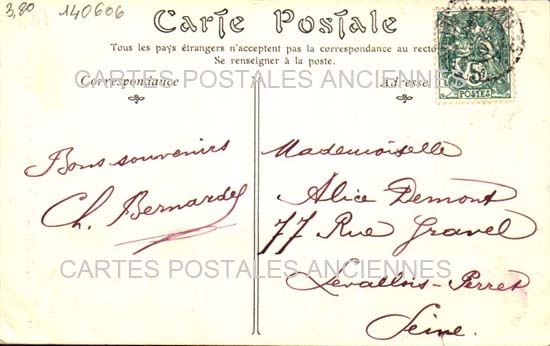 3,80 140606
Carte Postale
Tous les pays étrangers n'acceptent pas la correspondance au recto
Se renseigner à la poste.
Correspondance
Adresse
5
POSTES
CARTES POSTALES ANCIENNES
Bons souvenirs
Ch. Bernardel
Mademoiselle
Alice Demont
77 Rue Gravel
Levallois-Perret
Seine.
CARTES POSTALES ANCIENNES